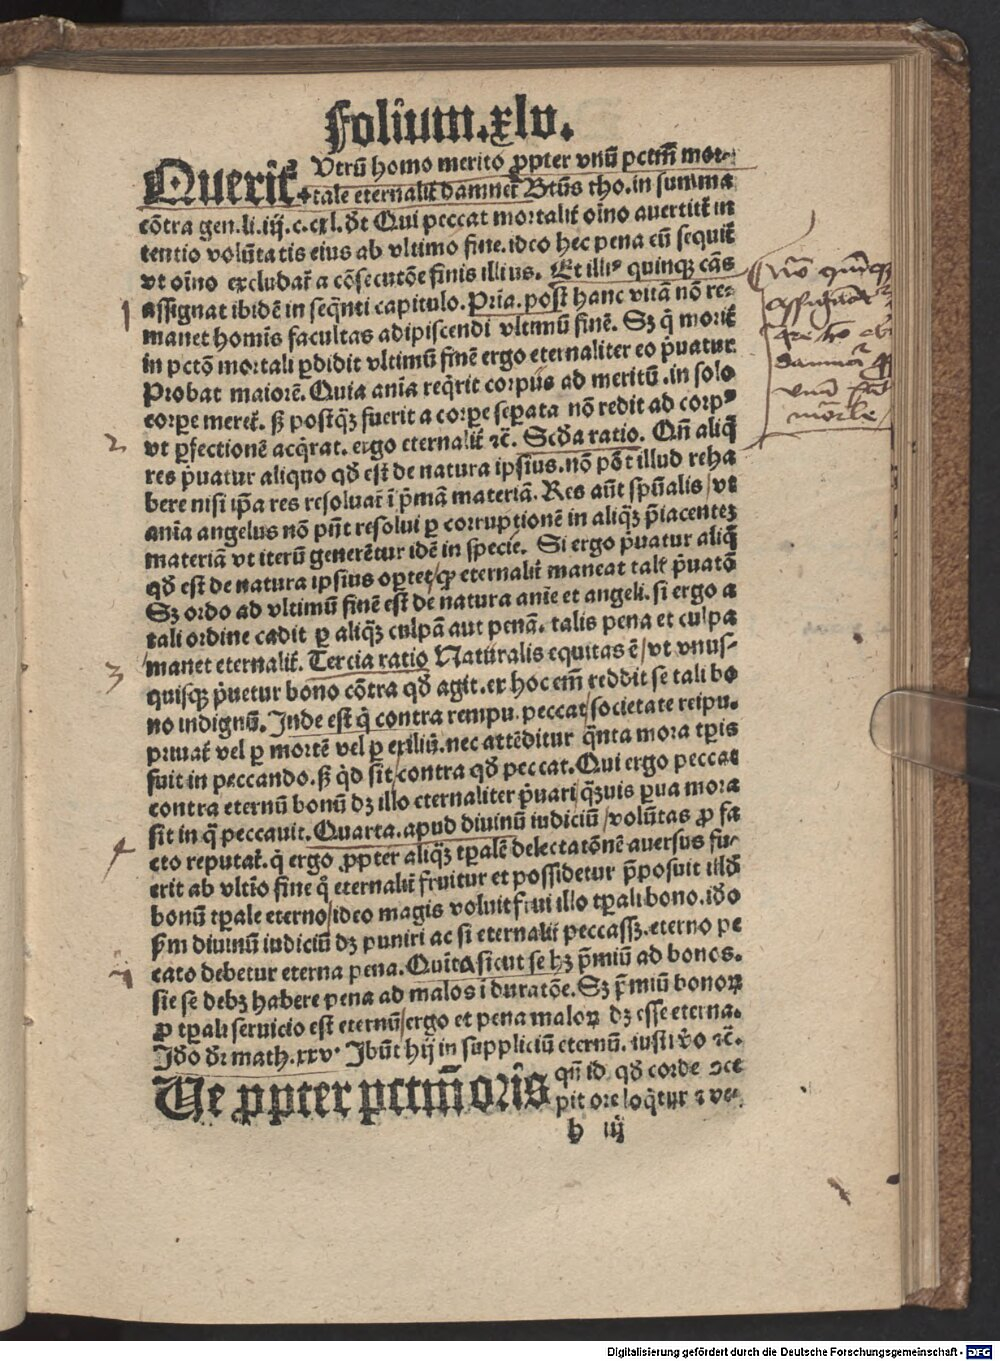 Folium.xlv.
Querit᷑ Vtrū homo merito ꝓpter vnū pctm̄ mor-
tale eternalit᷑ damnet᷑ Btūs tho. in summa
cōtra gen. li. iij. c. cxl. dt Qui peccat mortalit᷑ oīno auertit᷑ in
tentio volūtatis eius ab vltimo fine. ideo hec pena eū sequit᷑
vt oīno excludat᷑ a cōsecutōe finis illius. Et illiꝰ quinqꝫ cās
assignat ibidē in seqn̄ti capitulo. Pria. post hanc vitā nō re-
manet homīs facultas adipiscendi vltimū finē. Sꝫ q̇ morit᷑
in pctō mortali ꝑdidit vltimū finē ergo eternaliter eo p̄uatur
Probat maiorē. Quia anīa req̇rit corpus ad meritū. in solo
corpe meret᷑. sꝫ postqꝫ fuerit a corpe seperata nō redit ad corpꝰ
vt ꝑfectionē acq̇rat. ergo eternalit᷑ ⁊c̄. Scd̄a ratio. Qn̄ aliq̄
res p̄uatur aliquo qd̄ est de natura ipsius. nō pōt illud reha
bere nisi ip̄a res resoluat᷑ ī p̄mā materiā. Res aūt spūalis / vt
anīa angelus nō pn̄t resolui ꝑ corruptionē in aliqꝫ p̄iacentez
materiā vt iterū generētur idē in specie. Si ergo p̄uatur aliq̄
qd̄ est de natura ipsius oꝑtet / ꝙ eternalit᷑ maneat talis p̄uatō
Sꝫ ordo ad vltimū finē est de natura anīe et angeli. si ergo a
tali ordine cadit ꝑ aliqꝫ culpā aut penā. talis pena et culpa
manet eternalit᷑. Tercia ratio Naturalis equitas ē / vt vnus-
quisqꝫ p̄uetur bono cōtra qd̄ agit. ex hoc em̄ reddit se tali bo
no indignū. Inde est q̇ contra rempu. peccat / societate reipu.
priuat᷑ vel ꝑ mortē vel ꝑ exiliū. nec attēditur q̄nta mora tꝑis
fuit in peccando. sꝫ q̇d sit / contra qd̄ peccat. Qui ergo peccat
contra eternū bonū dꝫ illo eternaliter p̄uari / qꝫuis ꝑua mora
sit in q̄ peccauit. Quarta. apud diuinū iudiciū / volūtas ꝓ fa
cto reputat᷑. q̇ ergo ꝓpter aliqꝫ tꝑalē delectatōnē auersus fu-
erit ab vltīo fine q̇ eternalit᷑ fruitur et possidetur p̄posuit illd̄
bonū tꝑale eterno / ideo magis voluit frui illo tꝑali bono. iđo
sm̄ diuinū iudiciū dꝫ puniri ac si eternalit᷑ peccassꝫ. eterno pe
cato debetur eterna pena. Quīta sicut se hꝫ p̄miū ad bonos.
sic se debꝫ habere pena ad malos ī duratōe. Sꝫ p̄miū bonoꝝ
ꝓ tꝑali seruicio est eternū / ergo et pena maloꝝ dꝫ esse eterna.
Iđo dr̄ math. xxv. Ibūt hij in suppliciū eternū. iusti v̄o ⁊c̄.
Ue ꝓpter pctm̄ oris qn̄ id qd̄ corde ↄce
pit ore loq̇tur ⁊ ve-
h iij
1
2
3
4